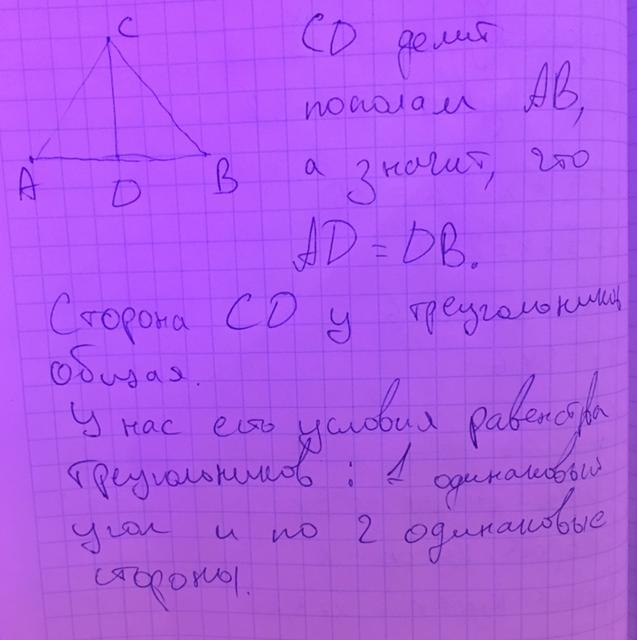 C
A
D
B
CD делит
пополам AB,
а значит, что
AD = DB.
Сторона CD у треугольников
общая.
У нас есть условия равенства
треугольников : 1 одинаковый
угол и по 2 одинаковые
стороны.